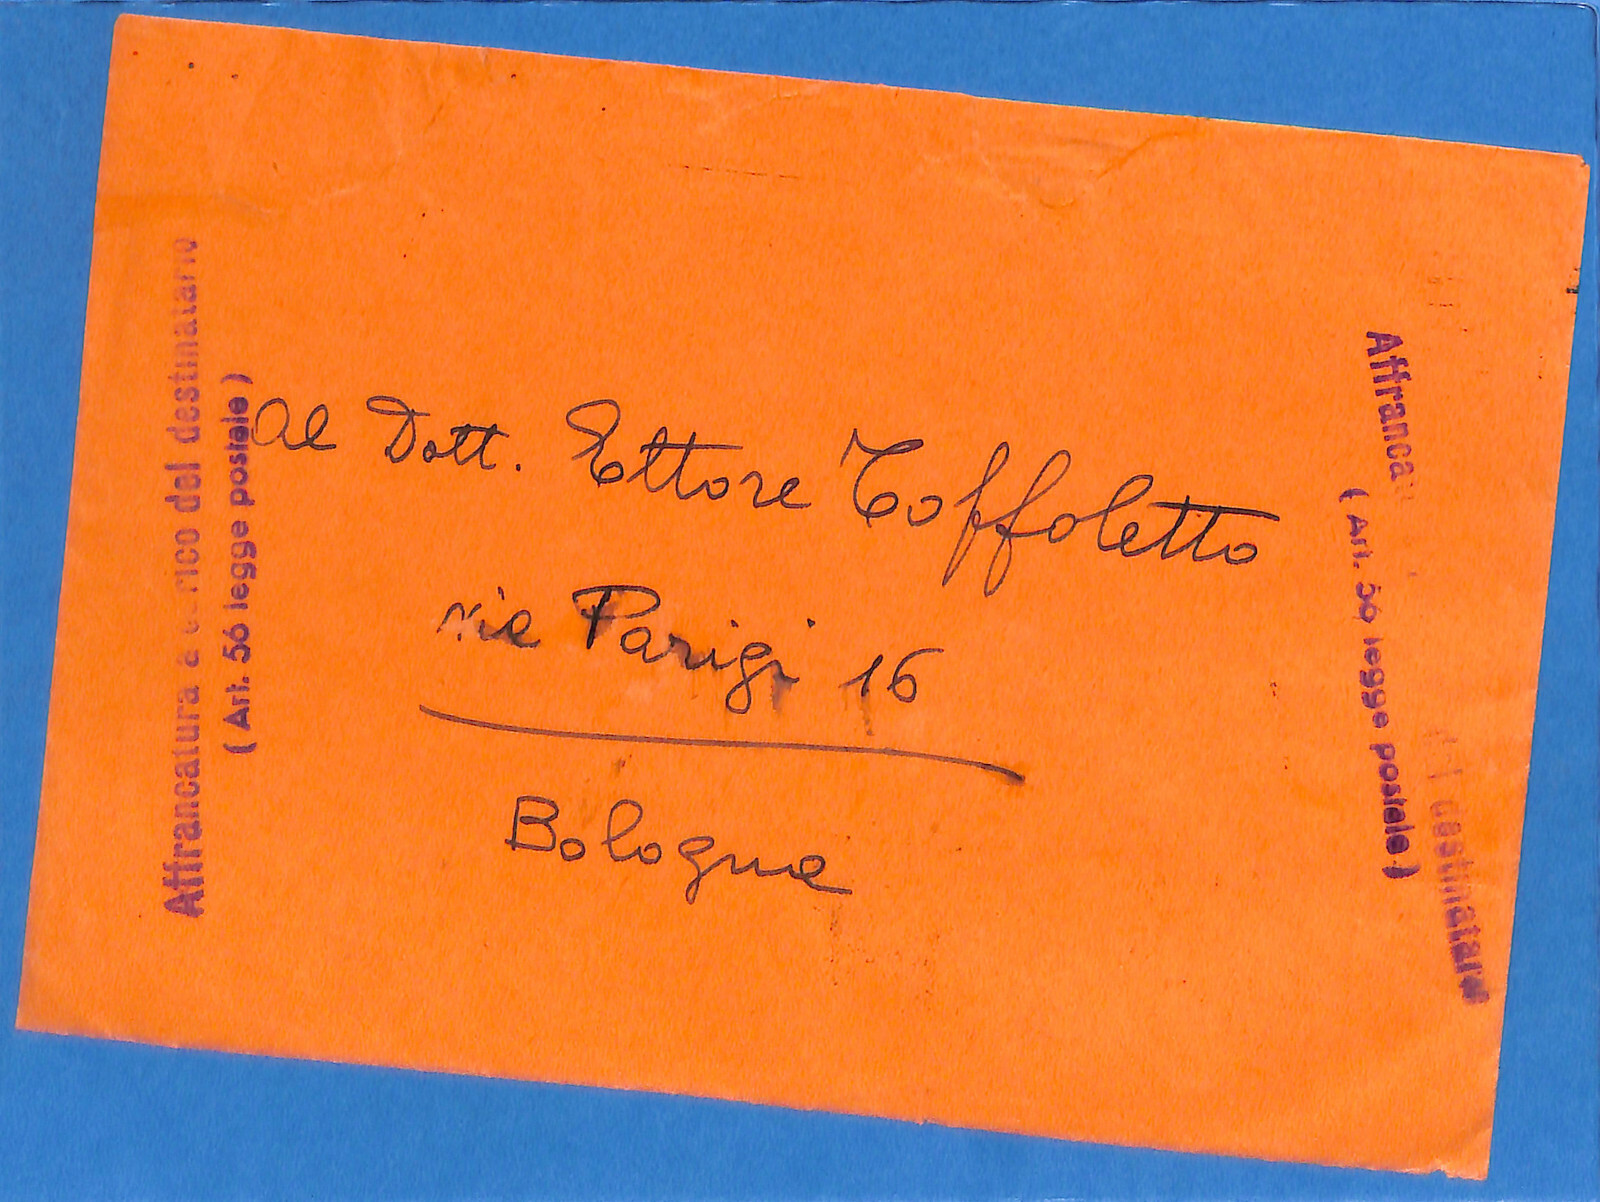 Affrancatura a carico del destinatario
( Art. 56 legge postale )
Al Dott. Ettore Toffoletto
via Parigi 16
Bologna
Affranca
del destinatario
( Art. 56 legge postale )